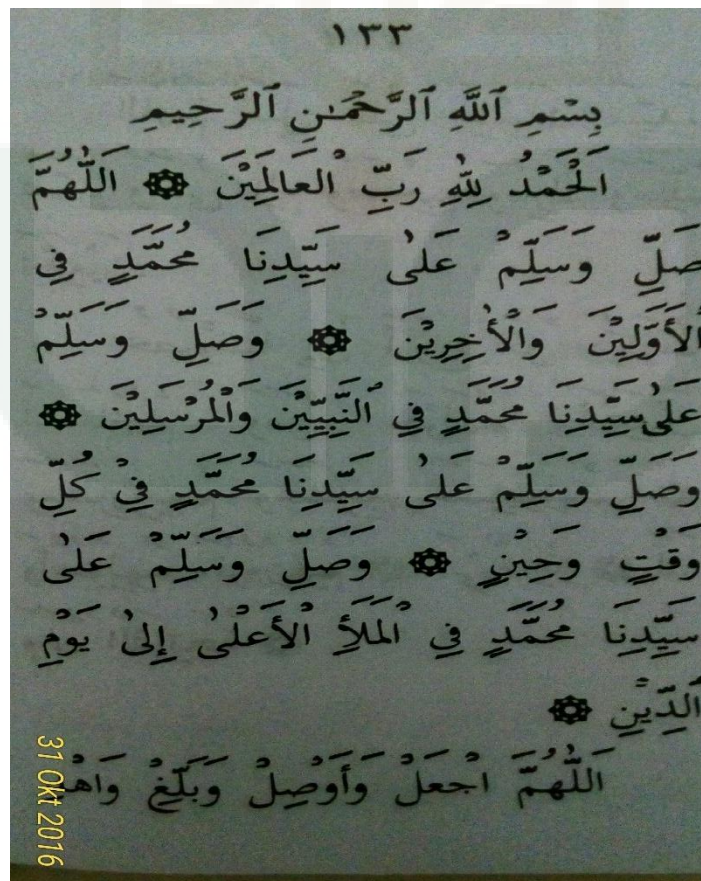 ١٣٣
بِسْمِ ٱللَّهِ ٱلرَّحْمَـٰنِ ٱلرَّحِيمِ
اَلْحَمْدُ لِلّٰهِ رَبِّ الْعَالَمِيْنَ ۞ اَللّٰهُمَّ
صَلِّ وَسَلِّمْ عَلٰى سَيِّدِنَا مُحَمَّدٍ فِي
الْأَوَّلِيْنَ وَالْأٰخِرِيْنَ ۞ وَصَلِّ وَسَلِّمْ
عَلٰى سَيِّدِنَا مُحَمَّدٍ فِي النَّبِيِّيْنَ وَالْمُرْسَلِيْنَ ۞
وَصَلِّ وَسَلِّمْ عَلٰى سَيِّدِنَا مُحَمَّدٍ فِيْ كُلِّ
وَقْتٍ وَحِيْنٍ ۞ وَصَلِّ وَسَلِّمْ عَلٰى
سَيِّدِنَا مُحَمَّدٍ فِي الْمَلَأِ الْأَعْلٰى إِلٰى يَوْمِ
الدِّيْنِ ۞
اَللّٰهُمَّ اجْعَلْ وَأَوْصِلْ وَبَلِّغْ
31 Okt 2016